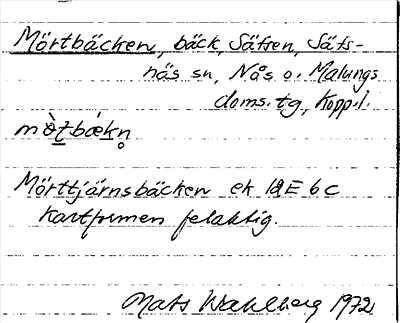 Mörtbäcken, bäck, Säfsen, Säfs-
näs sn, Nås o. Malungs
doms. tg, Kopp. l.
mò̱ṯbǽkn̥
Mörttjärnsbäcken ek 12E 6c
Kartformen felaktig.
Mats Wahlberg 1972